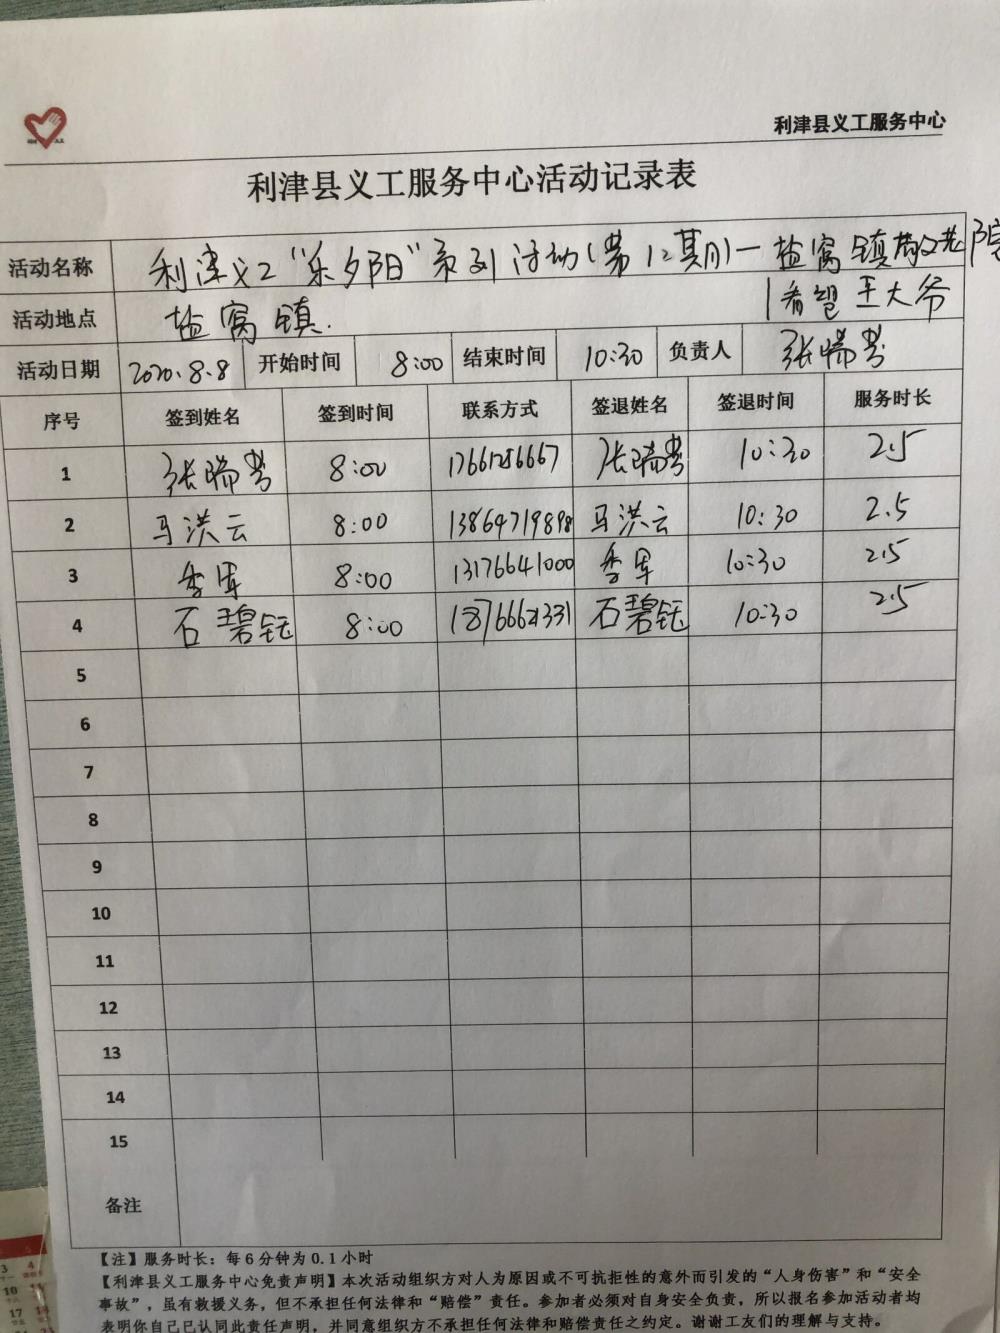 利津县义工服务中心
利津县义工服务中心活动记录表
活动名称 利津义工“乐夕阳”系列活动(第12期)一盐窝镇敬老院
看望王大爷
活动地点 盐窝镇.
活动日期 2020.8.8 开始时间 8:00 结束时间 10:30 负责人 张瑞芳
序号 签到姓名 签到时间 联系方式 签退姓名 签退时间 服务时长
1 张瑞芳 8:00 张瑞芳 10:30 2.5
2 马洪云 8:00 13864719898 马洪云 10:30 2.5
3 8:00 13176641000 10:30 2.5
4 石碧钰 8:00 石碧钰 10:30 2.5
5
6
7
8
9
10
11
12
13
14
15
备注
【注】服务时长：每6分钟为0.1小时
【利津县义工服务中心免责声明】本次活动组织方对人为原因或不可抗拒性的意外而引发的“人身伤害”和“安全
事故”，虽有救援义务，但不承担任何法律和“赔偿”责任。参加者必须对自身安全负责，所以报名参加活动者均
表明你自己已认同此责任声明，并同意组织方不承担任何法律和赔偿责任之约定。谢谢工友们的理解与支持。